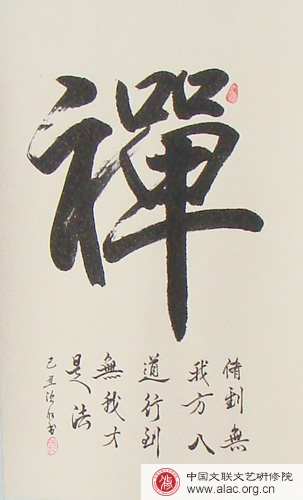 禪
脩到無
我方入
道行到
無我才
是法
己丑
中国文联文艺研修院
www.alac.org.cn